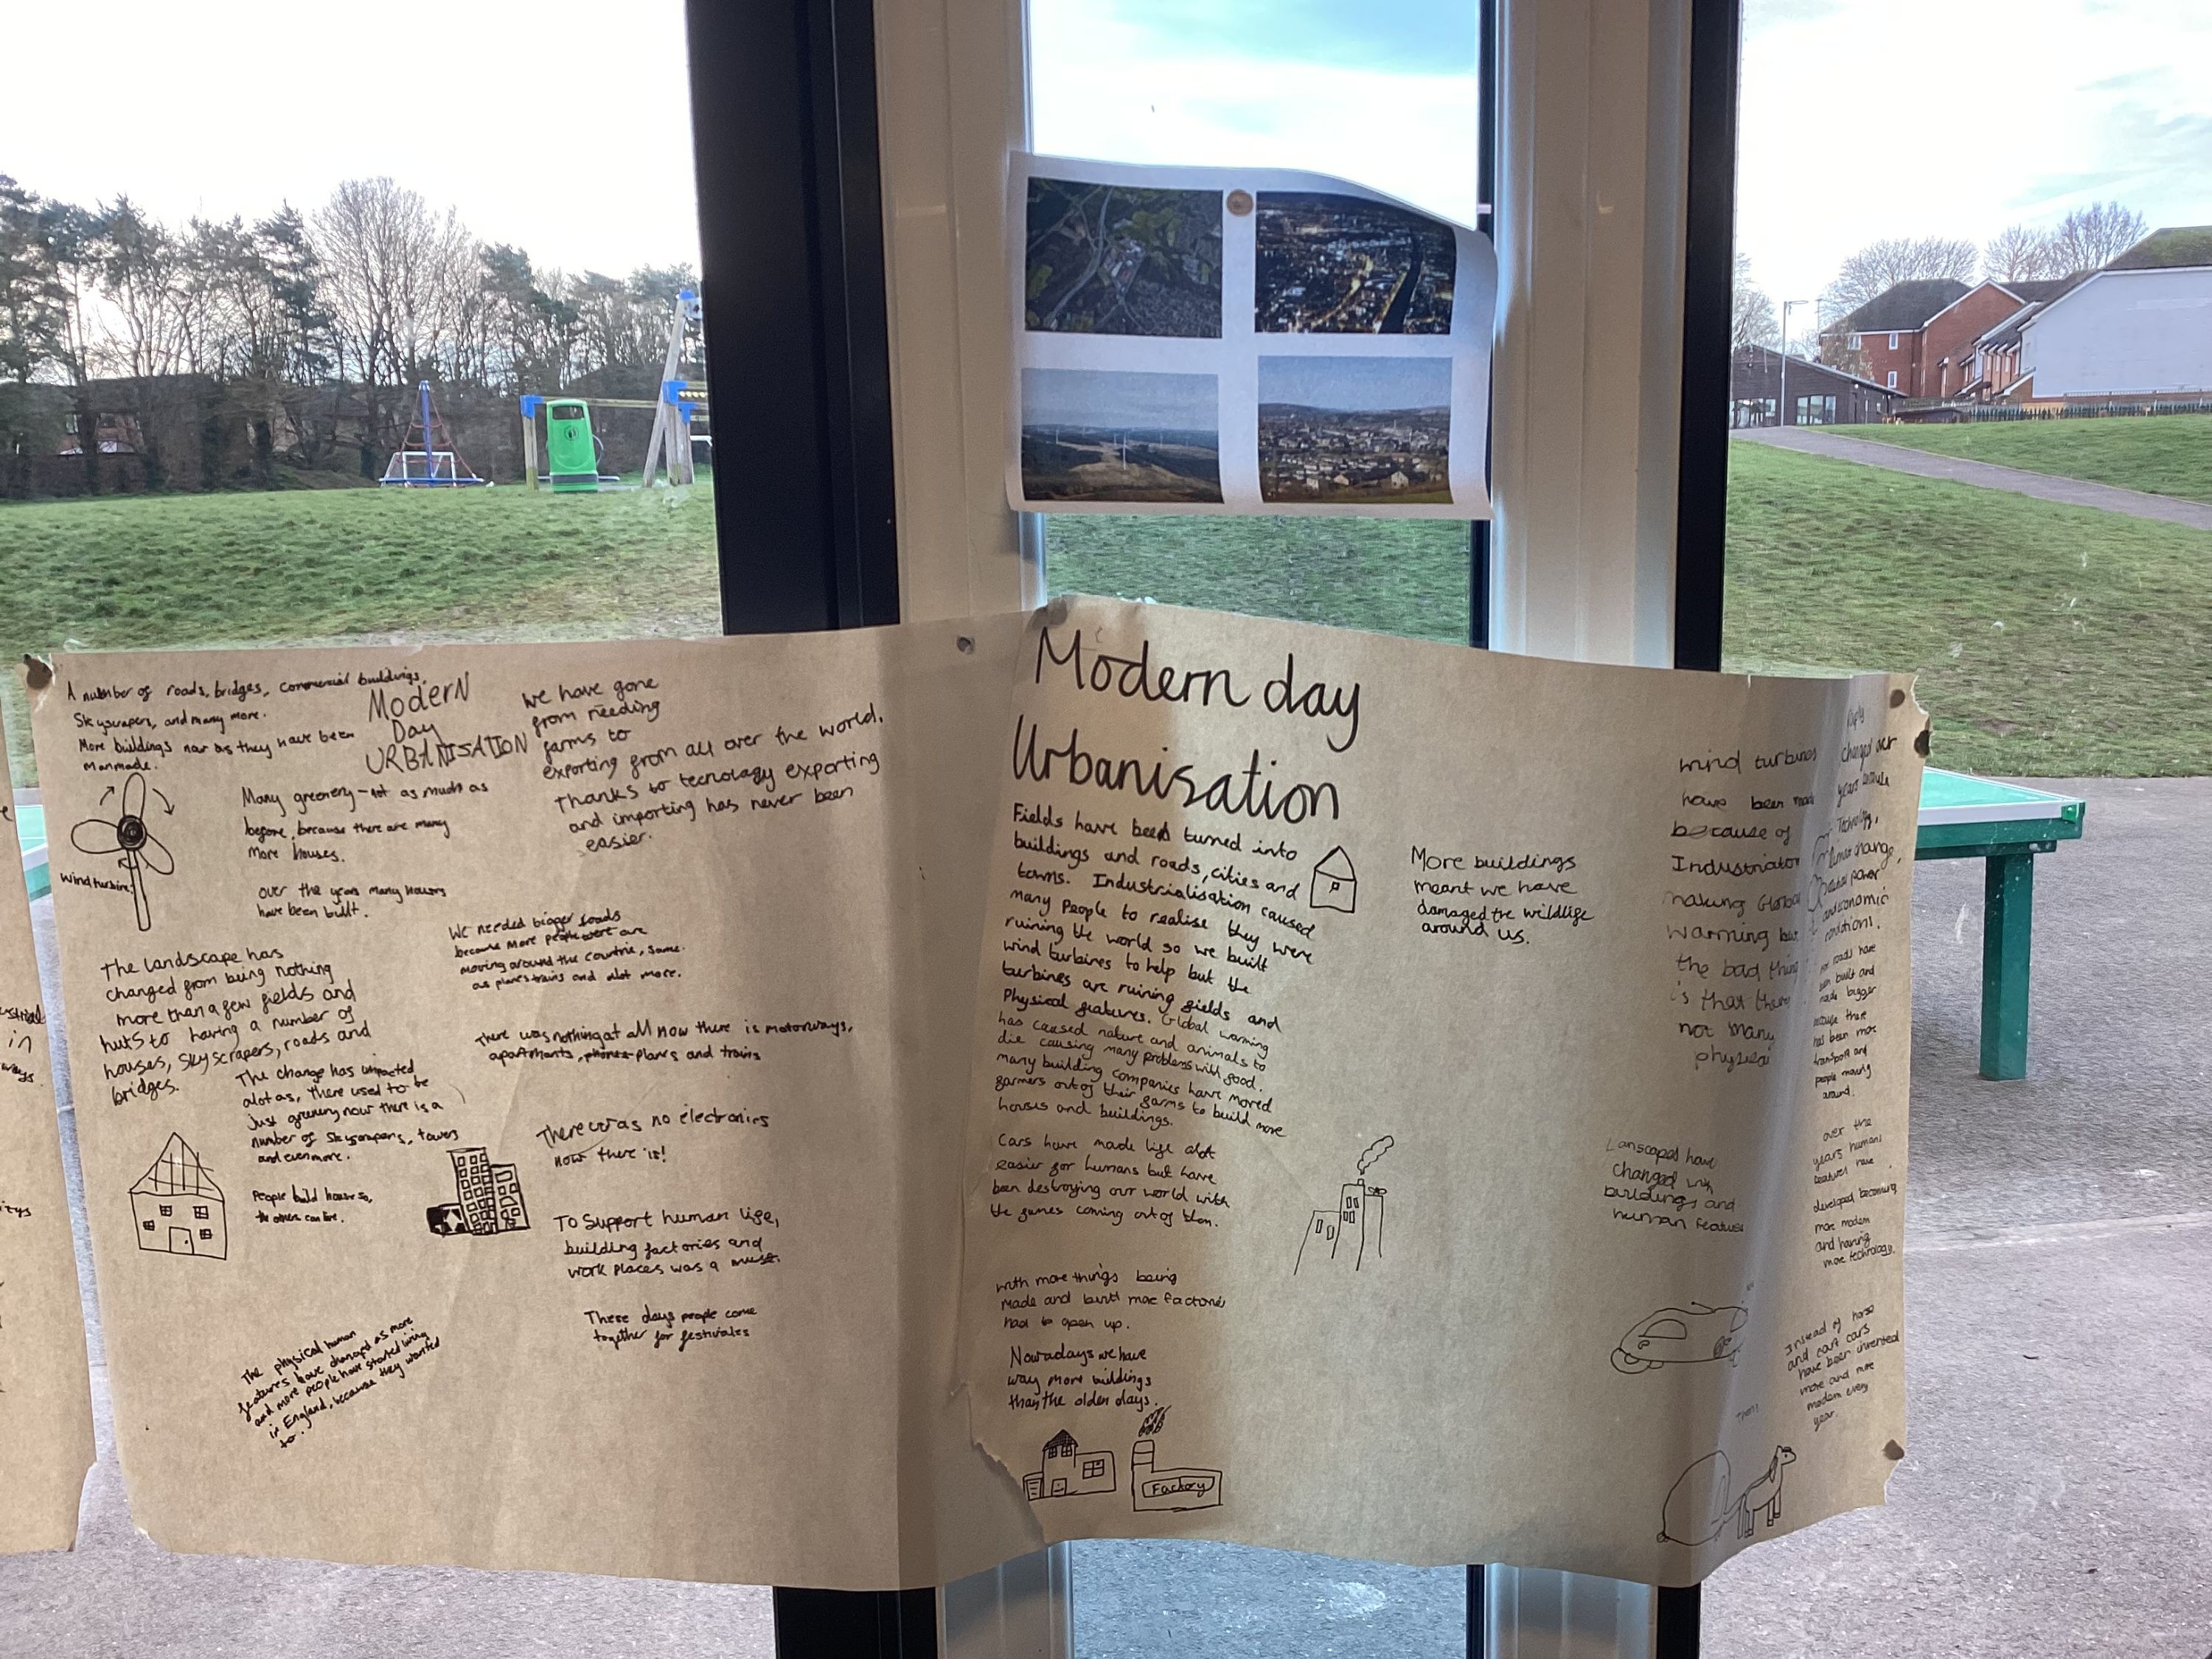 A number of roads, bridges, commercial buildings,
Skyscrapers, and many more.
More buildings now as they have been
manmade.
MODERN
Day
URBANISATION
we have gone
from needing
farms to
exporting from all over the world.
Thanks to tecnology exporting
and importing has never been
easier.
Many greenery - not as much as
before, because there are many
more houses.
over the years many houses
have been built.
wind turbine.
We needed bigger roads
because more people were are
moving around the countrie, same.
as planes trains and alot more.
The Landscape has
changed from being nothing
more than a few fields and
huts to having a number of
houses, skyscrapers, roads and
bridges.
There was nothing at all now there is motorways,
apartments, planes and trains
The change has impacted
alot as, there used to be
Just greenery now there is a
number of skyscrapers, towers
and even more.
There was no electronics
now there is!
People build house so,
the others can live.
To Support human life,
building factories and
work places was a muse.
These days people come
together for festivales
The physical human
features have changed as more
and more people have started living
in England, because they wanted
to.
Modern day
Urbanisation
Fields have been turned into
buildings and roads, cities and
towns. Industrialisation caused
many people to realise they were
ruining the world so we built
wind turbines to help but the
turbines are ruining fields and
Physical features. Global warming
has caused nature and animals to
die causing many problems with food.
many building companies have moved
farmers out of their farms to build more
houses and buildings.
Cars have made life alot
easier for humans but have
been destroying our world with
the fumes coming out of them.
with more things being
made and built more factories
had to open up.
Nowadays we have
way more buildings
than the older days.
Factory
More buildings
meant we have
damaged the wildlife
around us.
wind turbines
have been made
because of
Industriation
making Global
warming but
the bad thing
is that theres
not many
physical
Lanscapes have
changed with
buildings and
human features
changed over
years because
Technology,
climate change,
power
and economic
conditions.
roads have
been built and
made bigger
because there
has been more
transport and
people moving
around.
over the
years humans
features have
developed becoming
more modern
and having
more technology.
Instead of horse
and cart cars
have been invented
more and more
modern every
year.